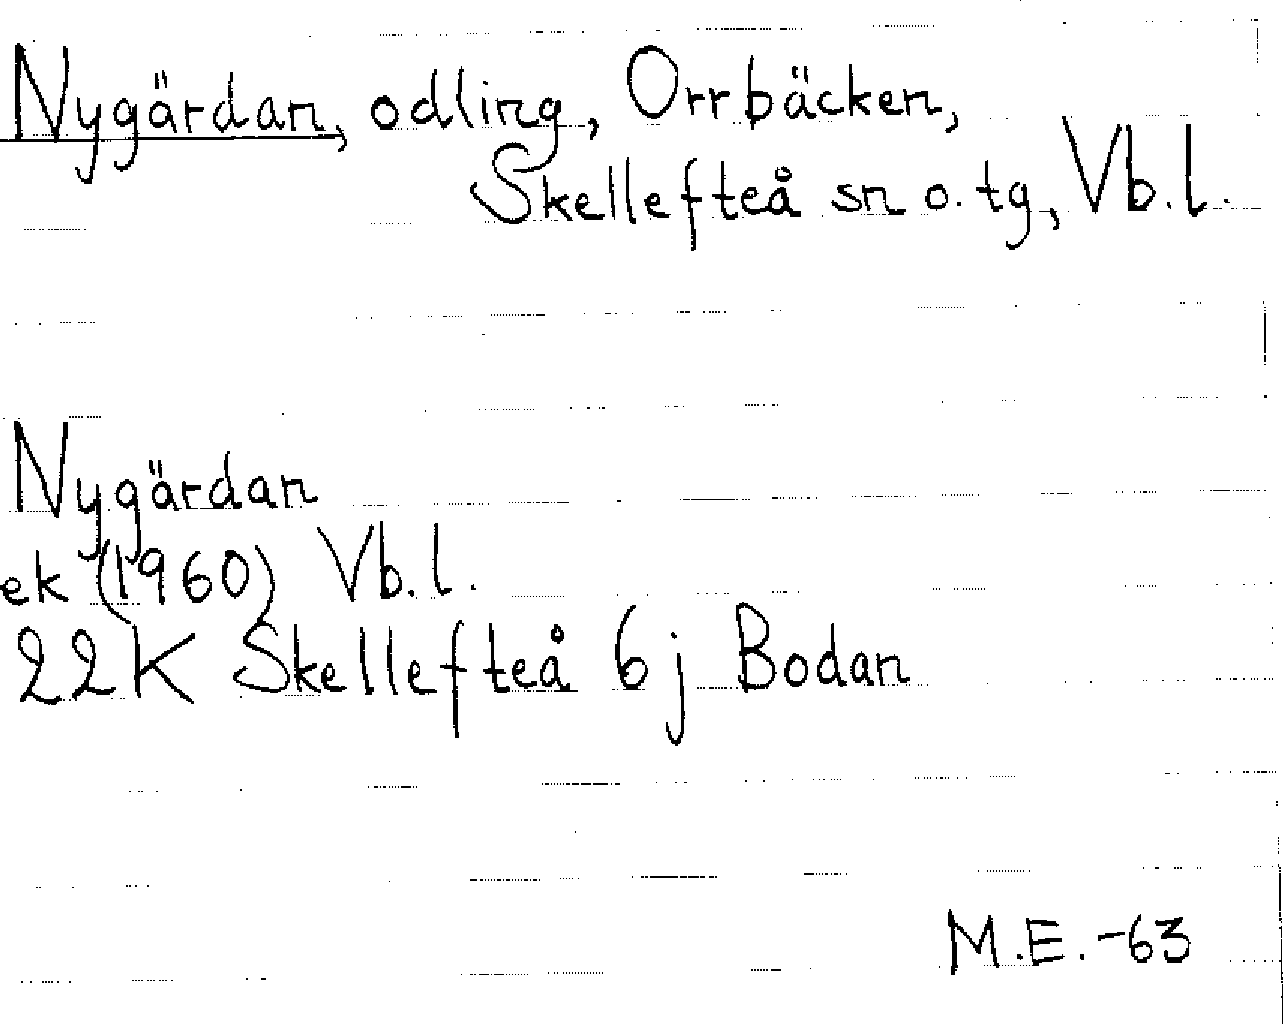 Nygärdan, odling, Orrbäcken,
Skellefteå sn o. tg, Vb. l.
Nygärdan
ek (1960) Vb. l.
22K Skellefteå 6j Bodan
M.E. -63